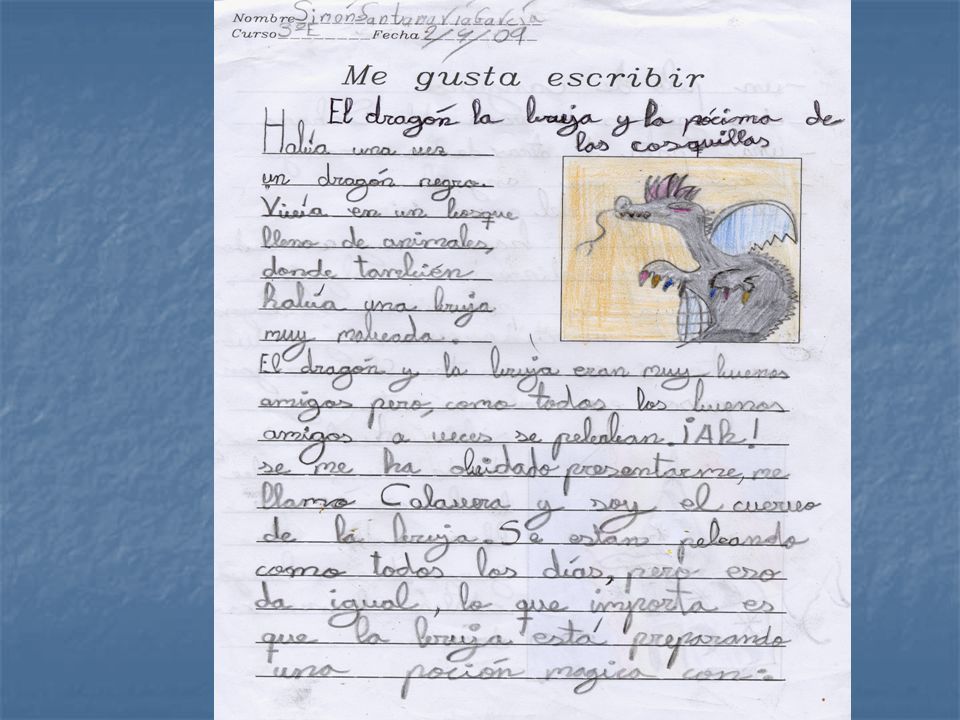 Nombre Simón Santamaría García
Curso 3ºE Fecha 2/9/09
Me gusta escribir
El dragón la bruja y la pócima de
las cosquillas
Había una vez
un dragón negro.
Vivía en un bosque
lleno de animales,
donde también
había una bruja
muy malvada.
El dragón y la bruja eran muy buenos
amigos pero, como todos los buenos
amigos a veces se peleaban. ¡Ah!
se me ha olvidado presentarme, me
llamo Calavera y soy el cuervo
de la bruja. Se están peleando
como todos los días, pero eso
da igual, lo que importa es
que la bruja está preparando
una poción magica con: